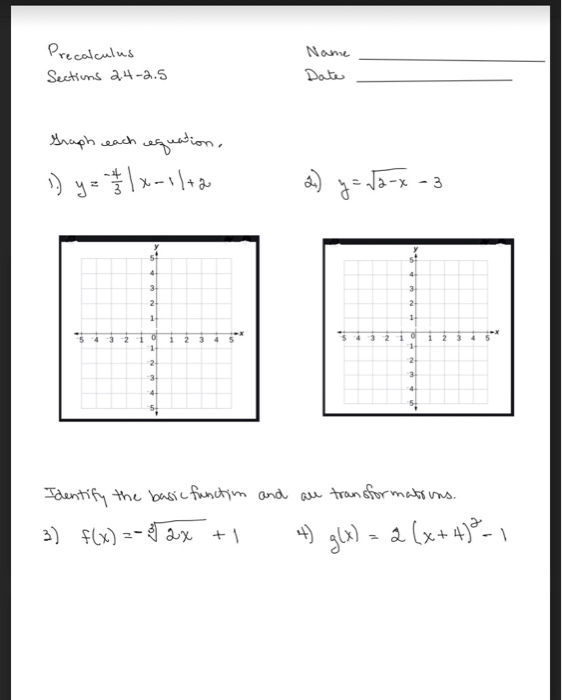 Precalculus
Name
Sections 2.4-2.5
Date
Graph each equation.
1.) y = -4/3 |x-1| + 2
2.) y = √2-x - 3
y
5
4
3
2
1
5 4 3 2 1 0 1 2 3 4 5 x
1
2
3
4
5
y
5
4
3
2
1
5 4 3 2 1 0 1 2 3 4 5 x
1
2
3
4
5
Identify the basic function and all transformations.
3) f(x) = -∛2x + 1
4) g(x) = 2(x+4)² - 1